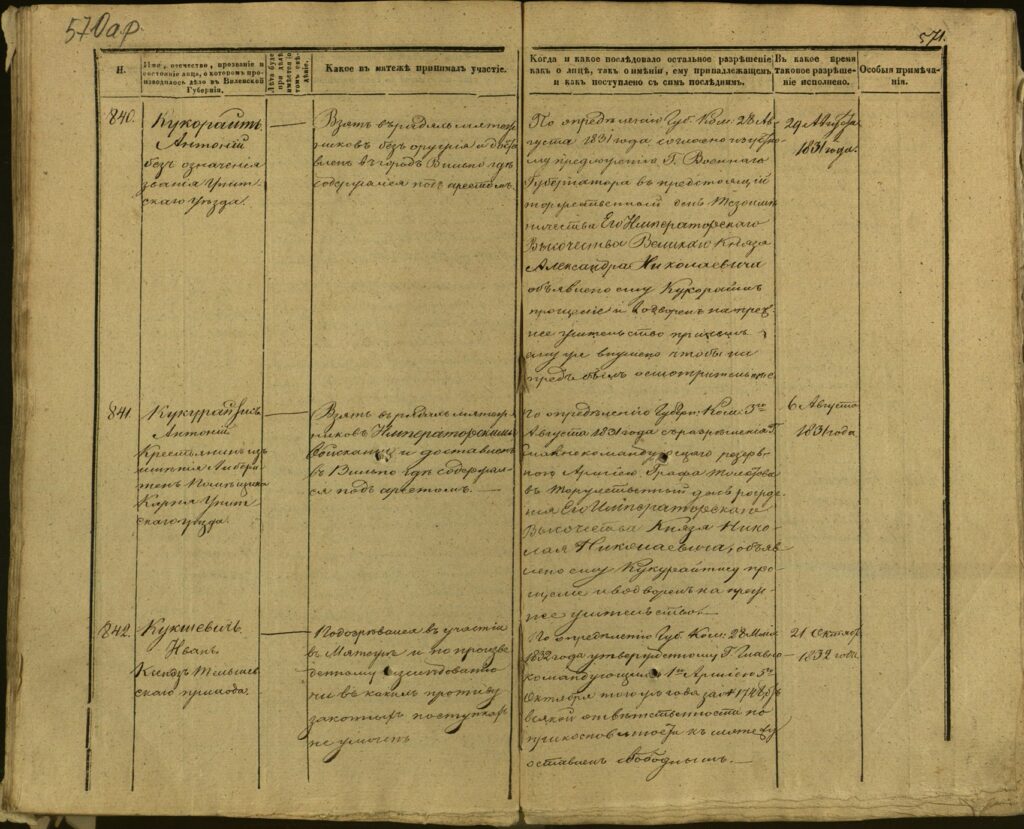 570 а.р.
571.
Н.
Имя, отечество, прозваніе и
состояніе лица, о которомъ про-
изводилось дѣло въ Виленской
Губерніи.
Какое въ мятежѣ принималъ участіе.
Когда и какое послѣдовало остальное разрѣшеніе
какъ о лицѣ, такъ о имѣніи, ему принадлежащемъ
и какъ поступлено съ симъ послѣднимъ.
Въ какое время
таковое разрѣше-
ніе исполнено.
Особыя примѣча-
нія.
840.
Кукорайтъ
Антоній
безъ означенія
званія Упит-
скаго уѣзда.
Взятъ въ рядахъ мятеж-
никовъ безъ оружія и достав-
ленъ въ городъ Вильно гдѣ
содержался подъ арестомъ.
По опредѣленію Губ. Ком: 28 Ав-
густа 1831 года согласно
му предложенію Г. Военнаго
Губернатора въ предстоящій
торжественный день Тезоиме-
ничества Его Императорскаго
Высочества Великаго Князя
Александра Николаевича
объявлено ему Кукорайтъ
прощеніе и водворенъ на преж-
нее жительство
внушено чтобы на
предъ былъ осмотрительнѣе.
29 Августа
1831 года.
841.
Кукурайтисъ
Антоній
Крестьянинъ изъ
имѣнія
Помѣщика
Карпя Упит-
скаго уѣзда.
Взятъ въ рядахъ мятеж-
никовъ Императорскими
Войсками и доставленъ
въ Вильно гдѣ содержал-
ся подъ арестомъ.
По опредѣленію Губерн: Ком: 5го
Августа 1831 года съ разрѣшенія Г.
Главнокомандующаго резерв-
ною Арміею Графа Толстова
въ торжественный день рожде-
нія Его Императорскаго
Высочества Князя Нико-
лая Николаевича, объяв-
лено ему Кукурайтису про-
щеніе и водворенъ на преж-
нее жительство.
6 Августа
1831 года
842.
Кукшевичъ
Иванъ
Ксіондзъ Тельшев-
скаго прихода.
Подозрѣвался въ участіи
въ Мятежѣ и по произве-
денному изслѣдованію
ни въ какихъ противу
законныхъ поступкахъ
не уличенъ
По опредѣленію Губ. Ком: 28 Мая
1832 года утвержденному Г. Главно-
командующимъ 1ю Арміею 5го
Октября того же года за № 1748, отъ
всякой отвѣтственности по
прикосновенности къ мятежу
оставленъ свободнымъ.
21 Октября
1832 года